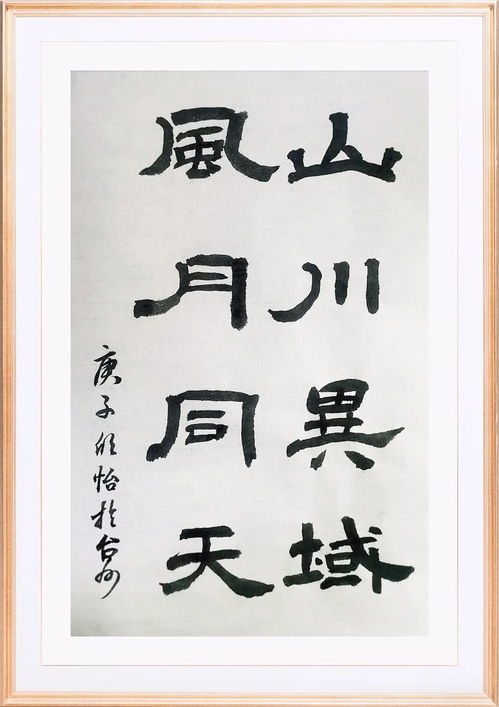 山川異域
風月同天
庚子欣怡於台州